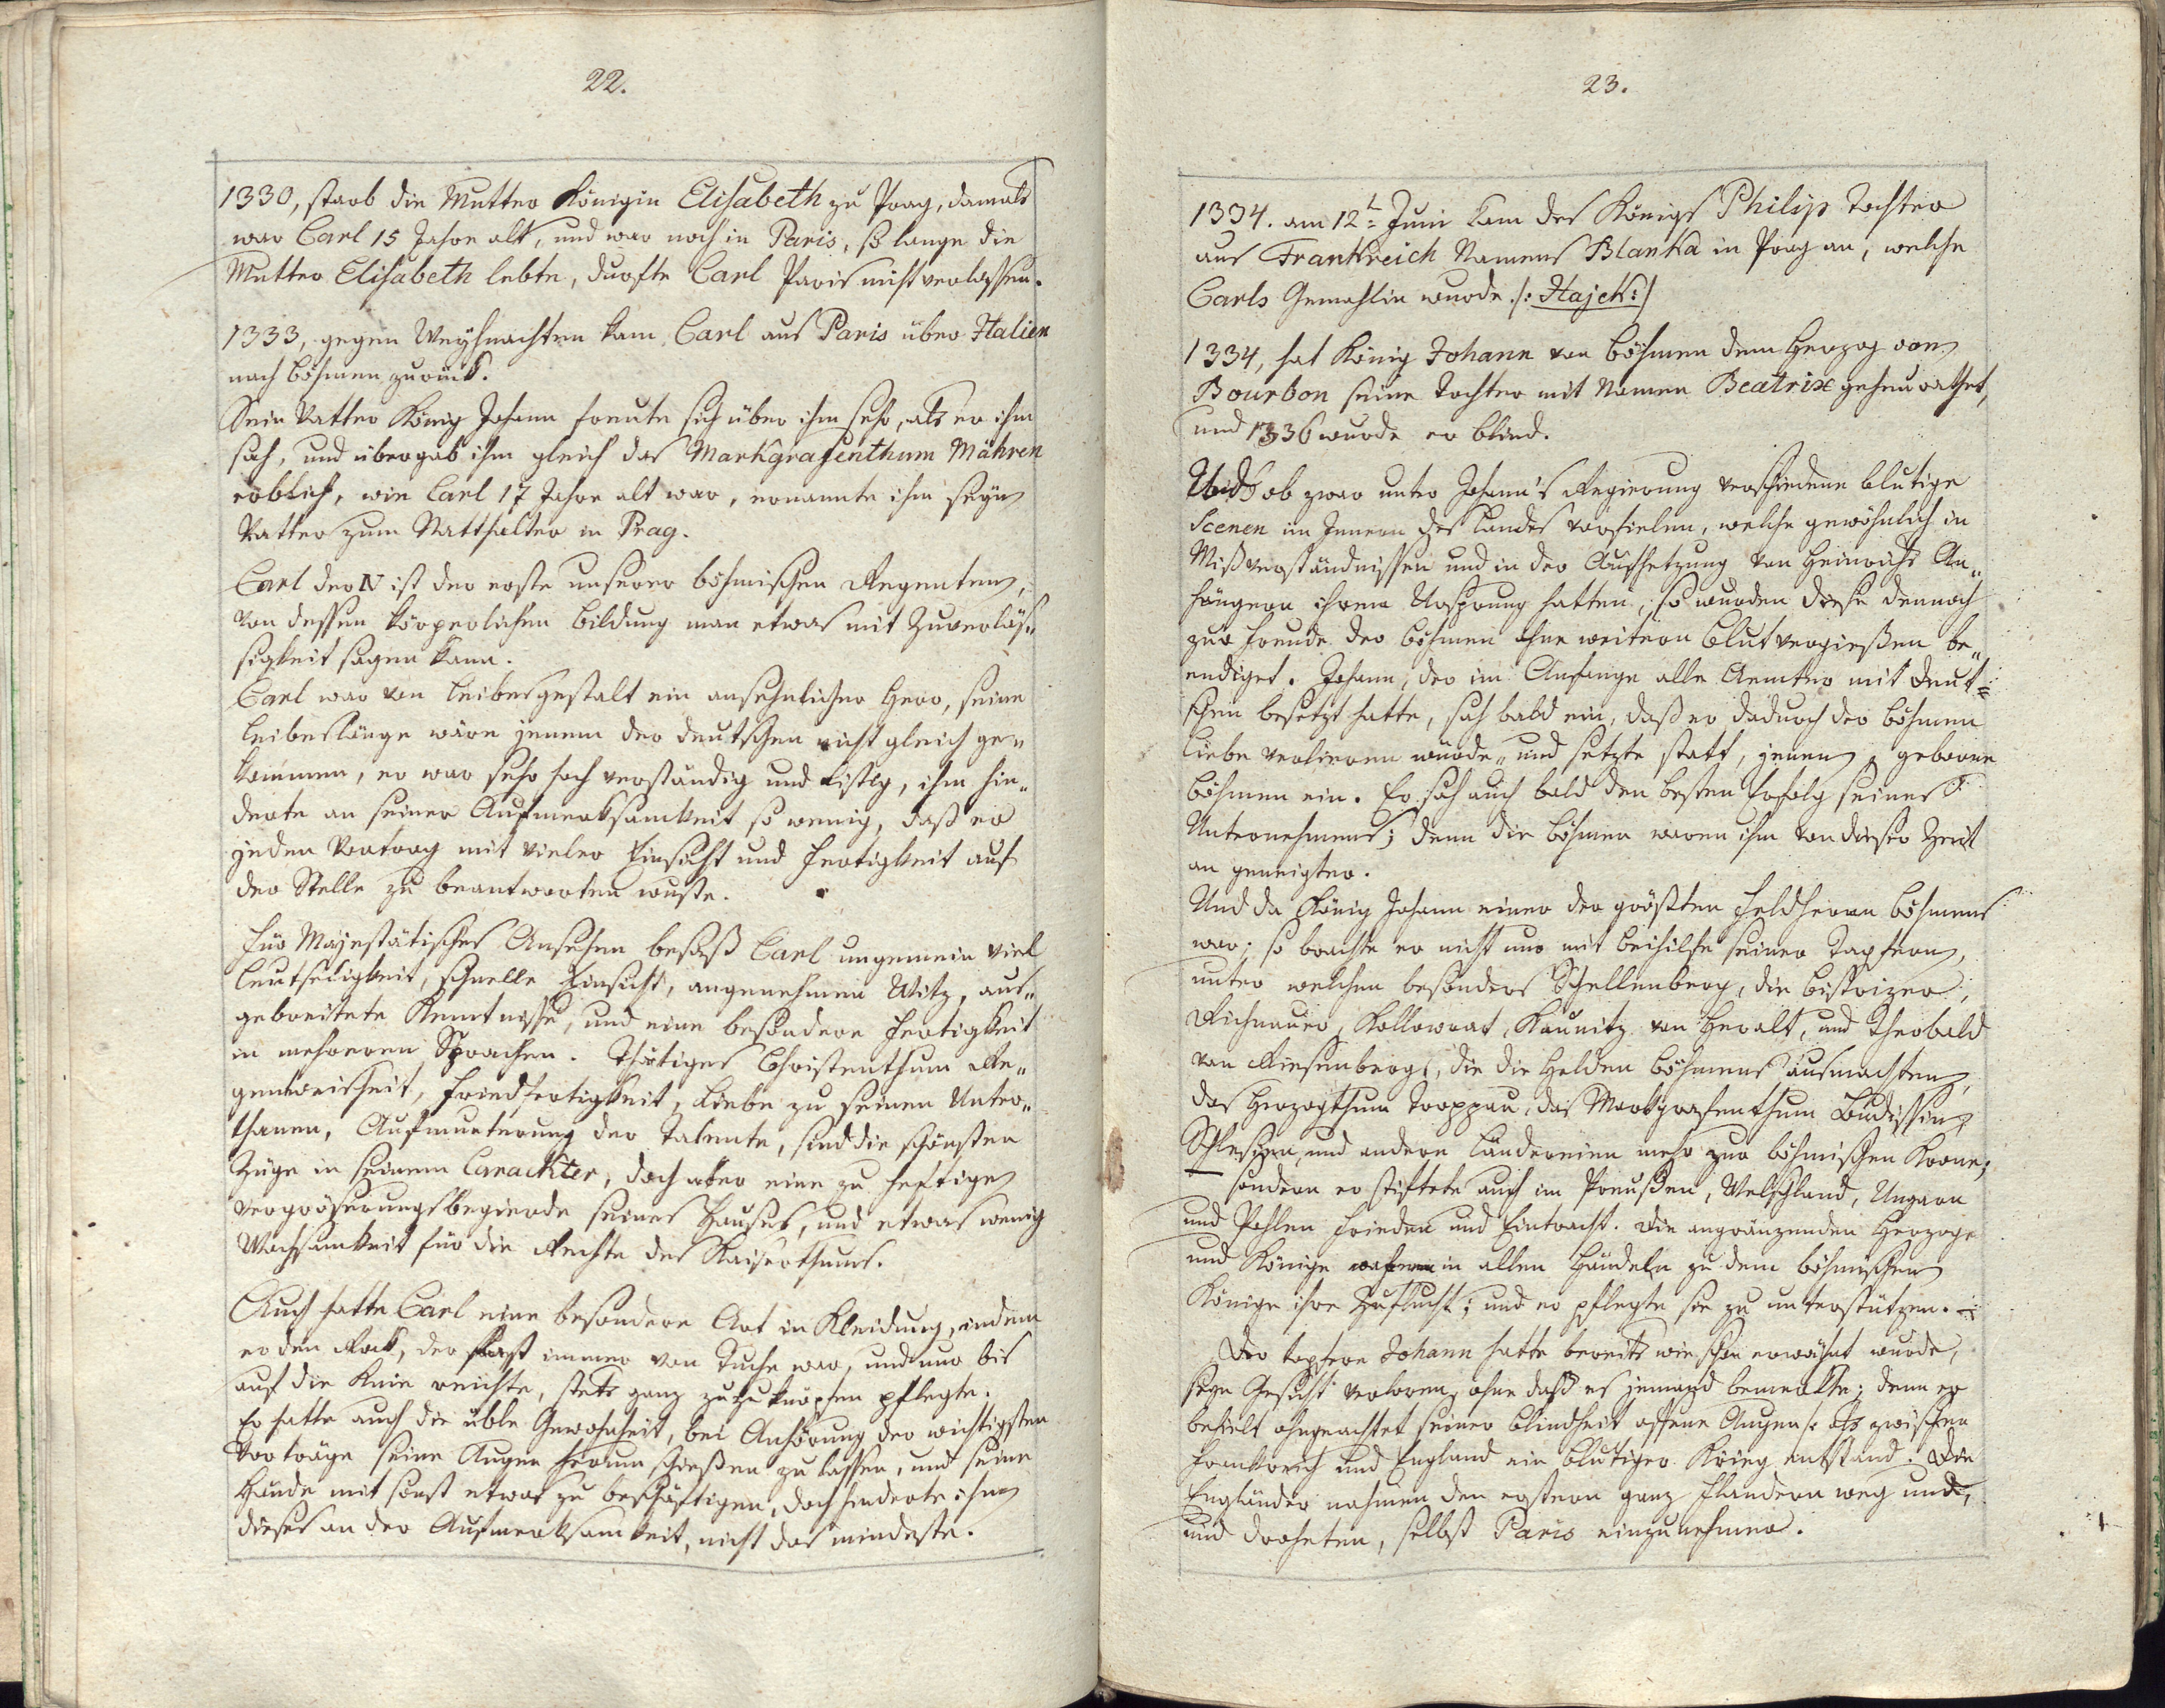 22.
1330, starb die Mutter Königin Elisabeth zu Prag, damals
war Carl 15 Jahre alt, und war noch in Paris, so lange die
Mutter Elisabeth lebte, durfte Carl Paris nicht verlassen.
1333, gegen Weyhnachten kam Carl aus Paris über Italien
nach Böhmen zurück.
Sein Vatter König Johann freute sich über ihm sehr, als er ihm
sah, und übergab ihm gleich das Markgrafenthum Mähren
erblich, wie Carl 17 Jahre alt war, ernannte ihm seyn
Vatter zum Statthalter in Prag.
Carl der IV ist der erste unserer böhmischen Regenten,
von dessen körperlichen Bildung man etwas mit Zuverläs„
sigkeit sagen kann.
Carl war von Leibesgestalt ein ansehnlicher Herr, seine
Leibeslänge wäre jenem der deutschen nicht gleich ge„
kommen, er war sehr hoch verständig und listig, ihm hin„
derte an seiner Aufmerksamkeit so wenig, daß er
jeden Vortrag mit vieler Einsicht und Fertigkeit auf
der Stelle zu beantworten wuste.
Für Majestätisches Ansehen besaß Carl ungemein viel
Leutseligkeit, schnelle Einsicht, angenehmen Witz, aus„
gebreitete Kenntnisse, und eine besondere Fertigkeit
in mehreren Sprachen. Thätiges Christenthum Re„
gentweisheit, Friedfertigkeit, Liebe zu seinen Unter„
thanen, Aufmunterung der Talente, sind die schönsten
Züge in seinem Carackter, doch aber eine zu heftige
Vergröserungsbegierde seines Hauses, und etwas wenig
Wachsamkeit für die Rechte des Kaiserthums.
Auch hatte Carl eine besondere Art in Kleidung, indem
er den Rock, der fast immer von Tuche war, und nur bis
auf die Knie reichte, stets ganz zuzuknöpfen pflegte.
Er hatte auch die üble Gewohnheit, bei Anhörung der wichtigsten
Vorträge seine Augen herum schießen zu lassen, und seine
Hände mit sonst etwas zu beschäftigen, doch hinderte ihm
dieses an der Aufmerksamkeit, nicht das mindeste.
23.
1334. am 12t: Juni kam des Königs Philip Tochter
aus Frankreich Namens Blanka in Prag an, welche
Carls Gemahlin wurde. /: Hajek :/
1334, hat König Johann von Böhmen dem Herzog von
Bourbon seine Tochter mit Namen Beatrix geheurathet,
und 1336 wurde er blind.
Und ob zwar unter Johann's Regierung verschiedene blutige
Scenen im Innern des Landes vorfielen, welche gewöhnlich in
Mißverständnissen und in der Aufhetzung von Heinrichs An„
hängern ihren Ursprung hatten, so wurden diese dennoch
zur Freude der Böhmen ohne weitern Blutvergießen be„
endiget. Johann, der im Anfange alle Aemter mit Deut=
schen besetzt hatte, sah bald ein, daß er dadurch der Böhmen
Liebe verlieren würde, und setzte statt, jenen, geborne
Böhmen ein. Er sah auch bald den besten Erfolg seines
Unternehmens; denn die Böhmen waren ihm von dieser Zeit
an geneigter.
Und da König Johann einer der größten Feldherrn Böhmens
war; so brachte er nicht nur mit Beihilfe seiner Tapfern,
unter welchen besonders Schellenberg, die Bistrizer,
Richnauer, Kollowrat, Kaunitz von Heralt, und Theobald
von Riesenberg, die die Helden Böhmens ausmachten,
das Herzogthum Troppau, das Markgrafenthum Budissin,
Schlesien, und andere Ländereien mehr zur böhmischen Krone;
sondern er stiftete auch im Preußen, Welschland, Ungarn
und Pohlen Frieden und Eintracht. Die angränzenden Herzoge
und Könige nahmen in allen Händeln zu dem böhmischen
Könige ihre Zuflucht; und er pflegte sie zu unterstützen.
Der tapfere Johann hatte bereits wie schon erwähnt wurde,
seyn Gesicht verloren, ohne daß es jemand bemerkte; denn er
behielt ohngeachtet seiner Blindheit offene Augen /: als zwischen
Frankreich und England ein blutiger Krieg entstand. Die
Engländer nahmen den erstern ganz Flandern weg und,
und droheten, selbst Paris einzunehmen.